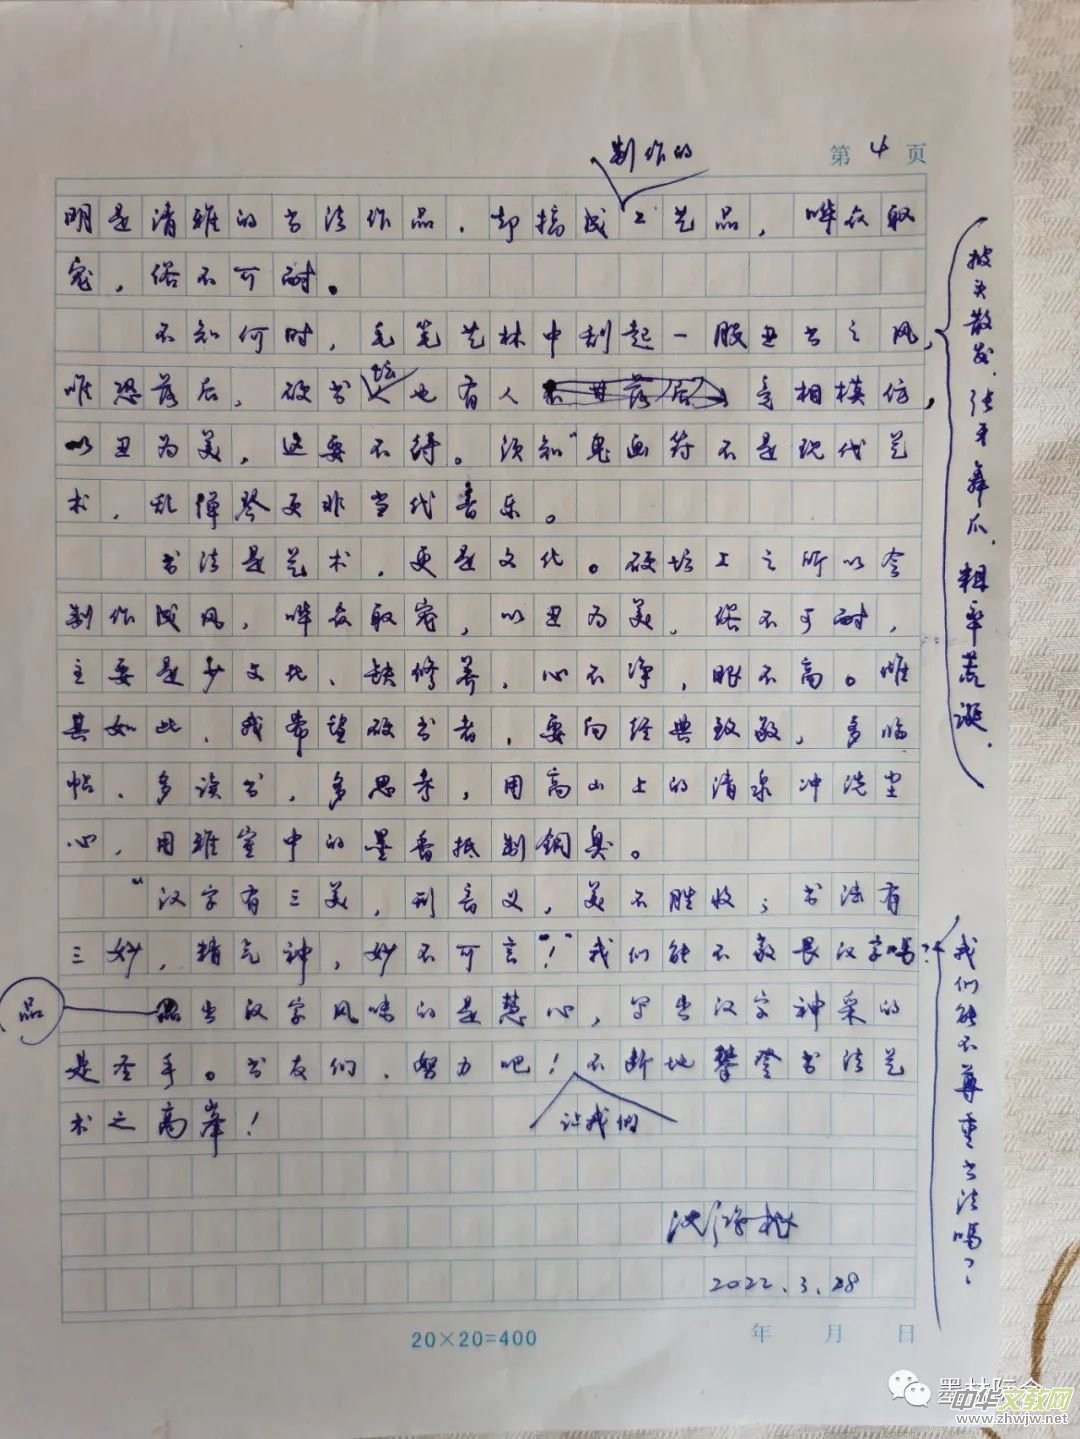 制作的
第 4 页
明是清雅的书法作品，却搞成工艺品，哗众取
宠，俗不可耐。
不知何时，毛笔艺林中刮起一股丑书之风，
披头散发、张牙舞爪、粗率荒诞、
唯恐落后，硬书坛也有人竞相模仿，
以丑为美，这要不得。须知"鬼画符不是现代艺
术，乱弹琴更非当代音乐。
书法是艺术，更是文化。硬坛上之所以会
制作成风，哗众取宠，以丑为美，俗不可耐，
主要是少文化、缺修养，心不净，眼不高。惟
其如此，我希望硬书者，要向经典致敬，多临
帖、多读书，多思考，用高山上的清泉冲洗尘
心，用雅室中的墨香抵制铜臭。
"汉字有三美，形音义，美不胜收；书法有
三妙，精气神，妙不可言"！我们能不敬畏汉字吗？
我们能不尊重书法吗？
品
出汉字风味的是慧心，写出汉字神采的
是圣手。书友们，努力吧！不断地攀登书法艺
让我们
术之高峰！
沈鸿根
2022.3.28
20×20=400
年 月 日
墨林际会
中华文教网
www.zhwjw.net